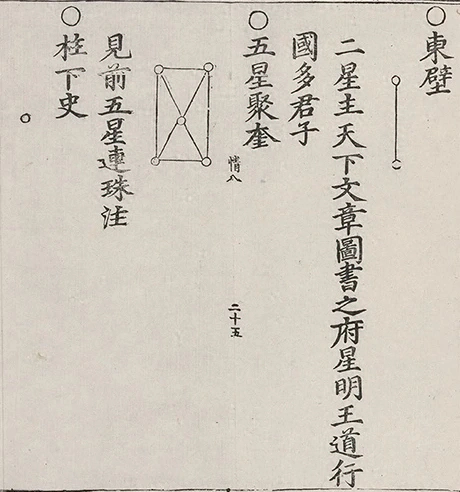 東壁
二星主天下文章圖書之府星明王道行
國多君子
五星聚奎
情八
二十五
見前五星連珠注
柱下史